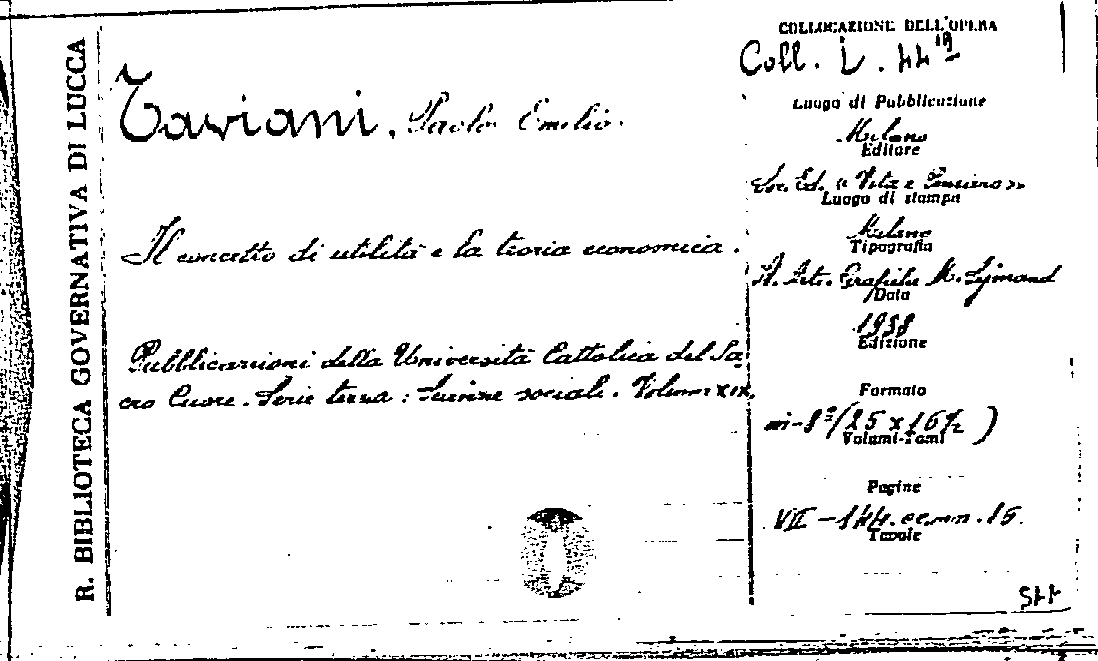 R. BIBLIOTECA GOVERNATIVA DI LUCCA
Taviani, Paolo Emilio.
Il concetto di utilità e la teoria economica.
Pubblicazioni della Università Cattolica del Sa-
cro Cuore. Serie terza: Scienze sociali. Volume XIX.
COLLOCAZIONE DELL'OPERA
Coll. L. 44 19
Luogo di Pubblicazione
Milano
Editore
Soc. Ed. « Vita e Pensiero »
Luogo di stampa
Milano
Tipografia
A. Arti. Grafiche M.
Data
1938
Edizione
Formato
in-8º (25 x 16½)
Volumi-Tomi
Pagine
VII - 144. 15.
Tavole